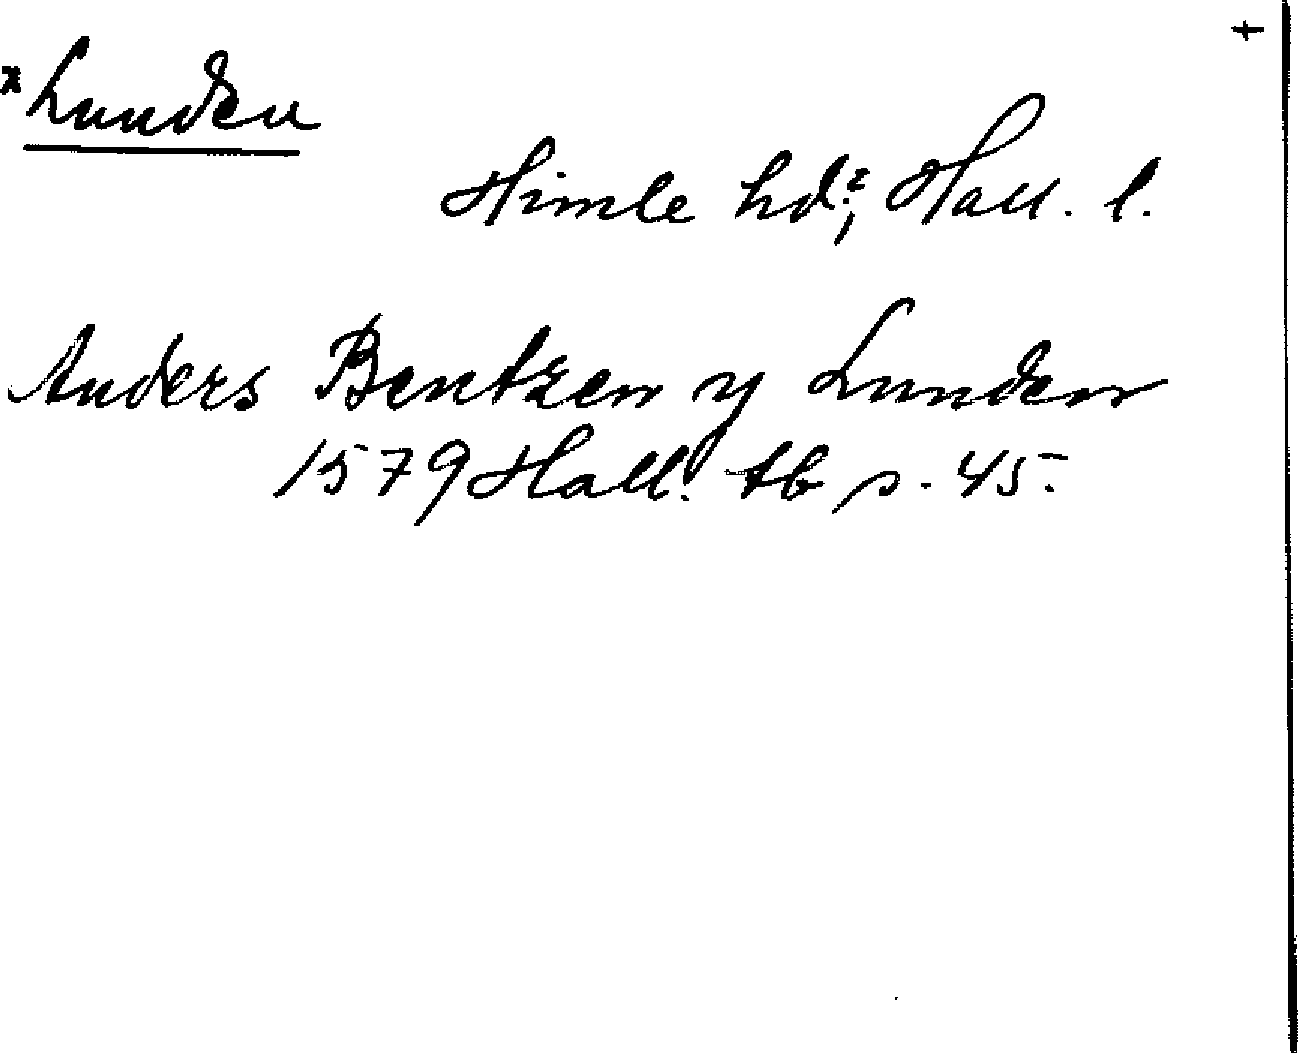 +
*Lunden
Himle hd:, Hall. l.
Anders Bentzen y Lunden
1579 Hall. tb s. 45.